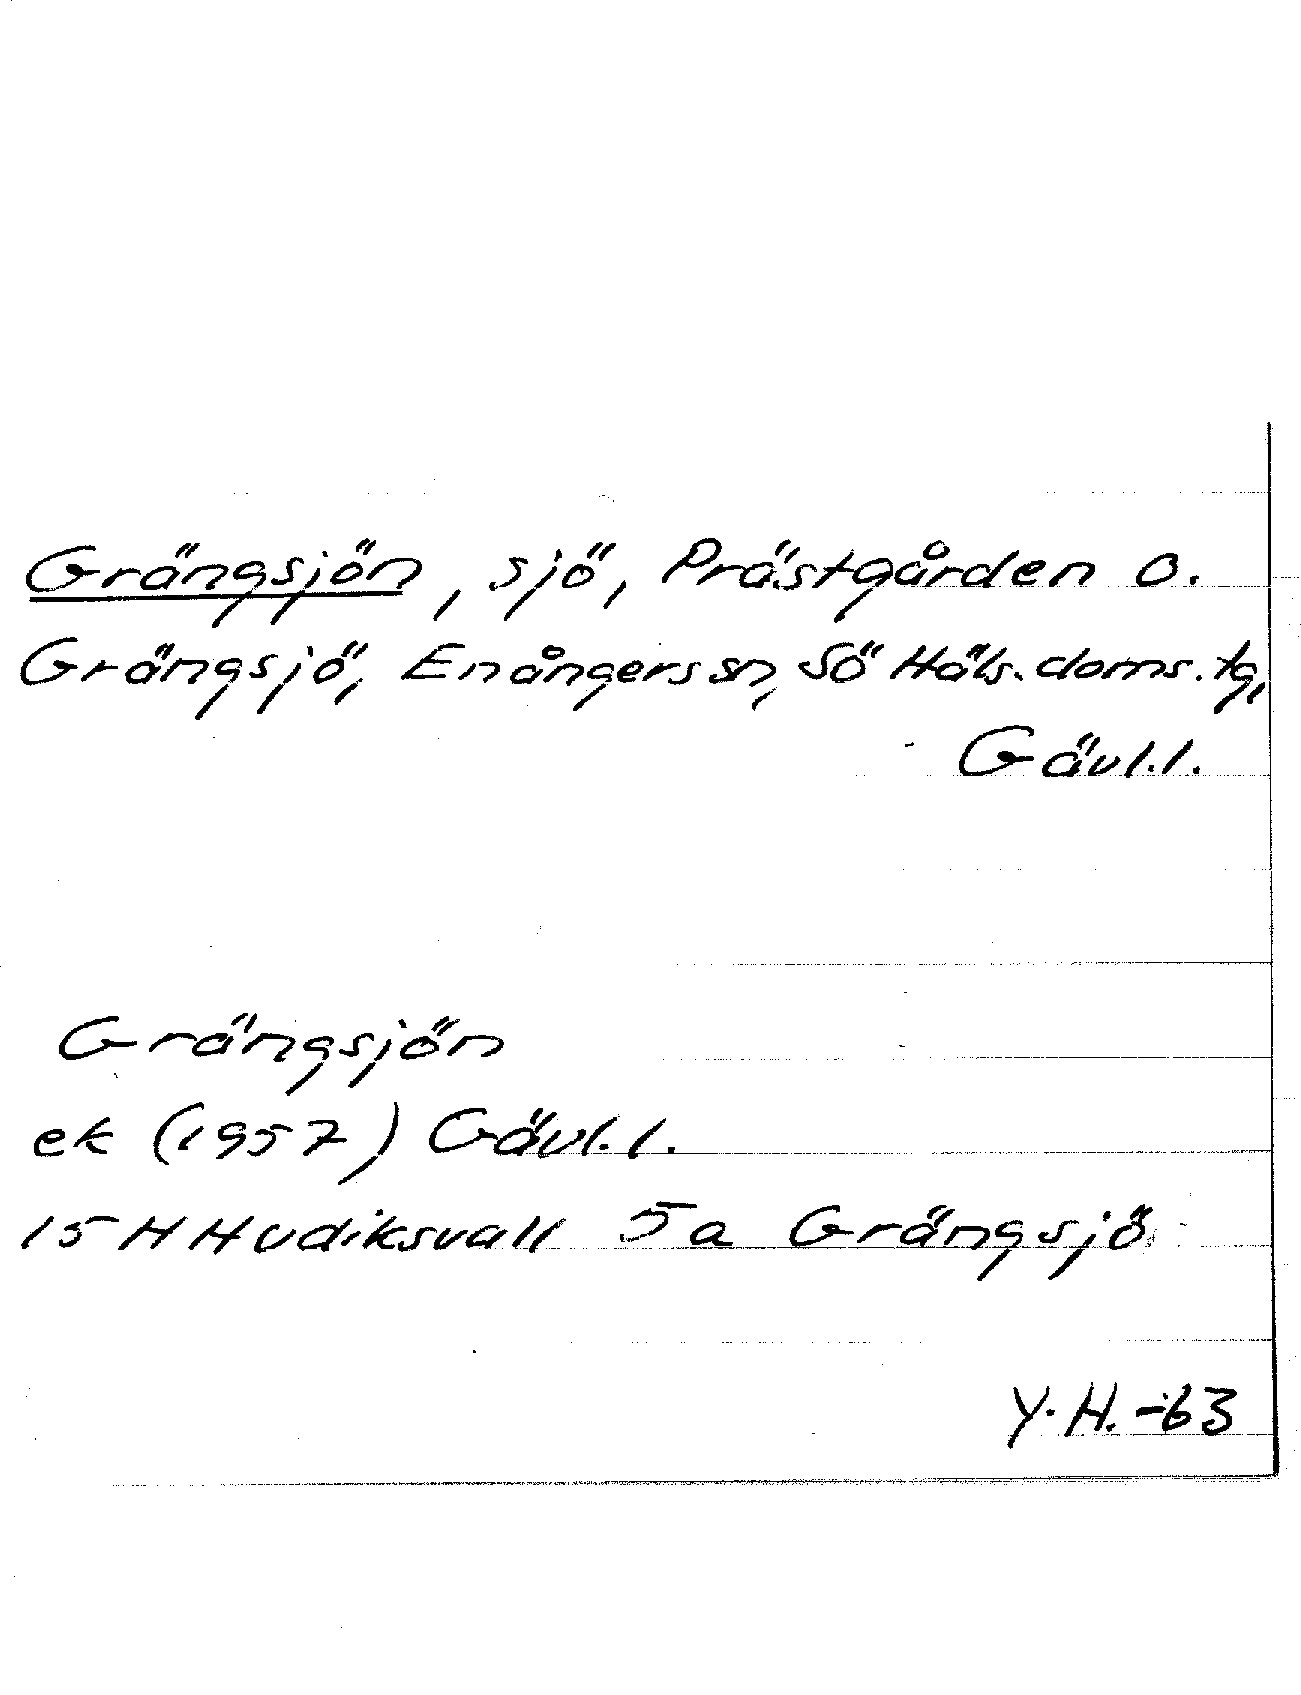 Grängsjön, sjö, Prästgården o.
Grängsjö, Enångers sn, Sö Häls. doms. tg,
Gävl.l.
Grängsjön
ek (1957) Gävl.l.
15 H Hudiksvall 5a Grängsjö
Y.H. -63